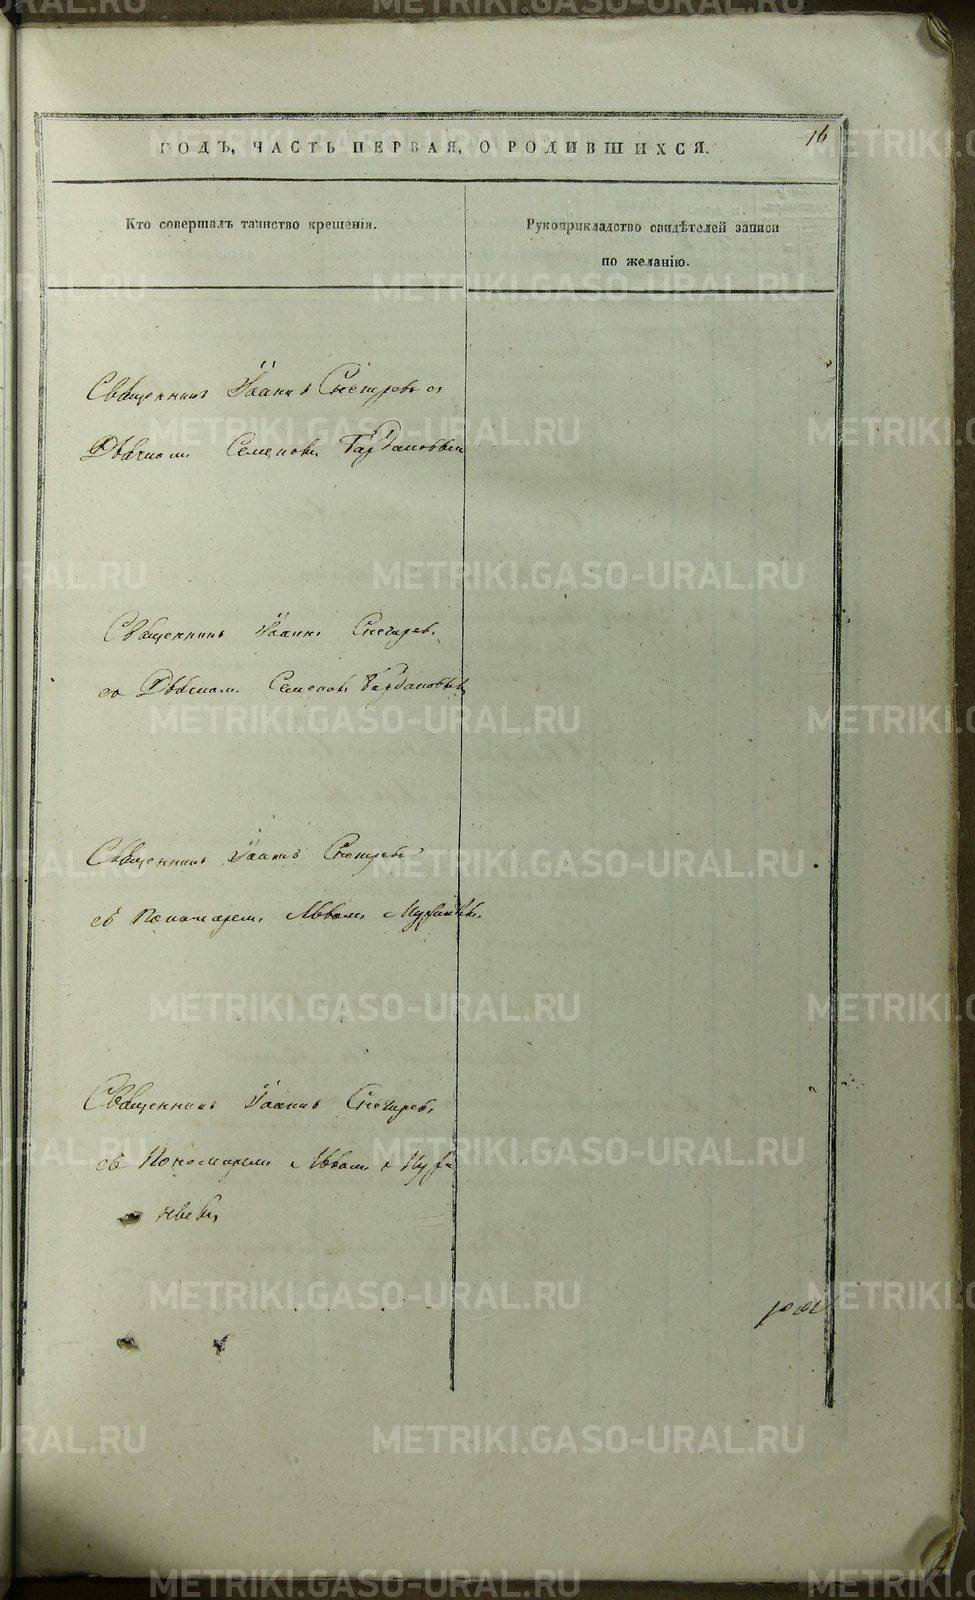 16
ГОДЪ, ЧАСТЬ ПЕРВАЯ, О РОДИВШИХСЯ.
Кто совершалъ таинство крещенія.
Рукоприкладство свидѣтелей записи
по желанію.
Священникъ Іоаннъ Снегиревъ съ
Дьячкомъ Семеномъ
Священникъ Іоаннъ Снегиревъ
съ Дьячкомъ Семеномъ
Священникъ Іоаннъ Снегиревъ
съ Пономаремъ Львомъ
Священникъ Іоаннъ Снегиревъ
съ Пономаремъ Львомъ
METRIKI.GASO-URAL.RU